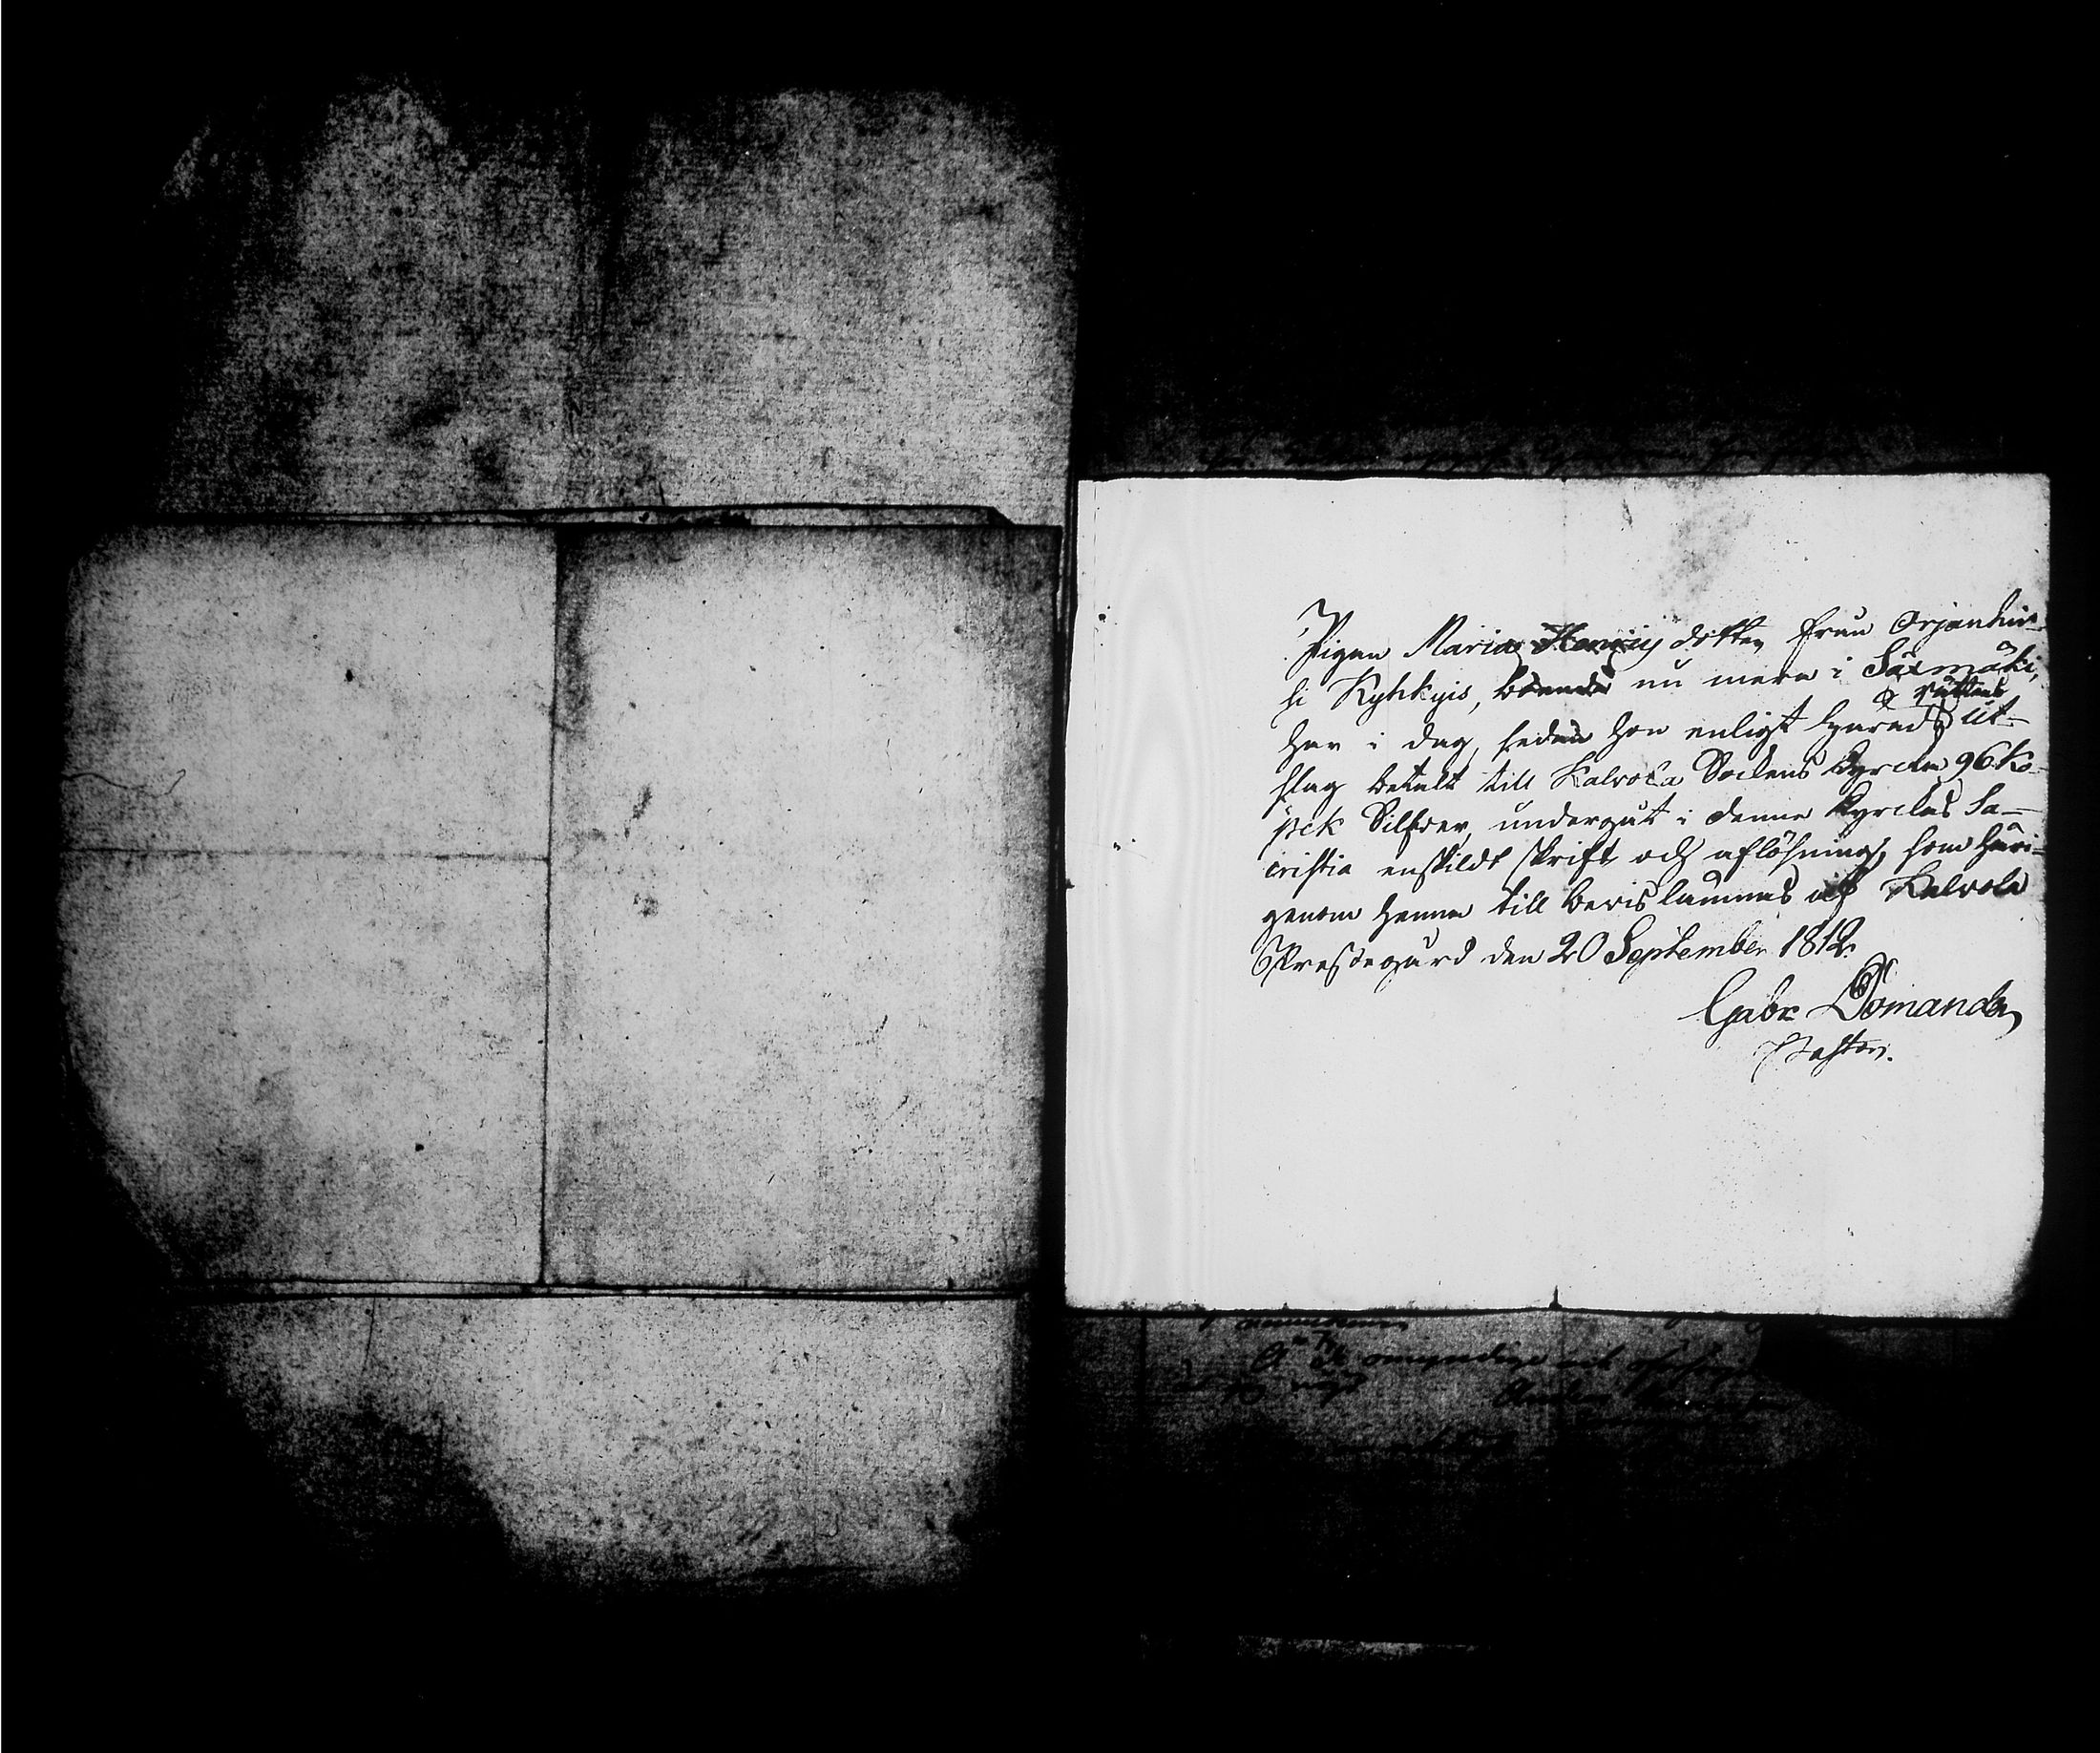 Pigan Maria Henricsdotter från Orjanhir-
si Kyhkyis, boende nu mera i Säxmäki,
har i dag, sedan hon enligt Härads rättens ut-
slag betalt till Kalvola Sockens Kyrcka 96 Ko-
pek Silfver, undergåt i denne Kyrckas Sa-
cristia enskildt skrift och aflösning, som häri-
genom henne till bevis lämnas af Kalvola
Prestegård den 20 September 1812.
Gabr
Pastor.
omyndige